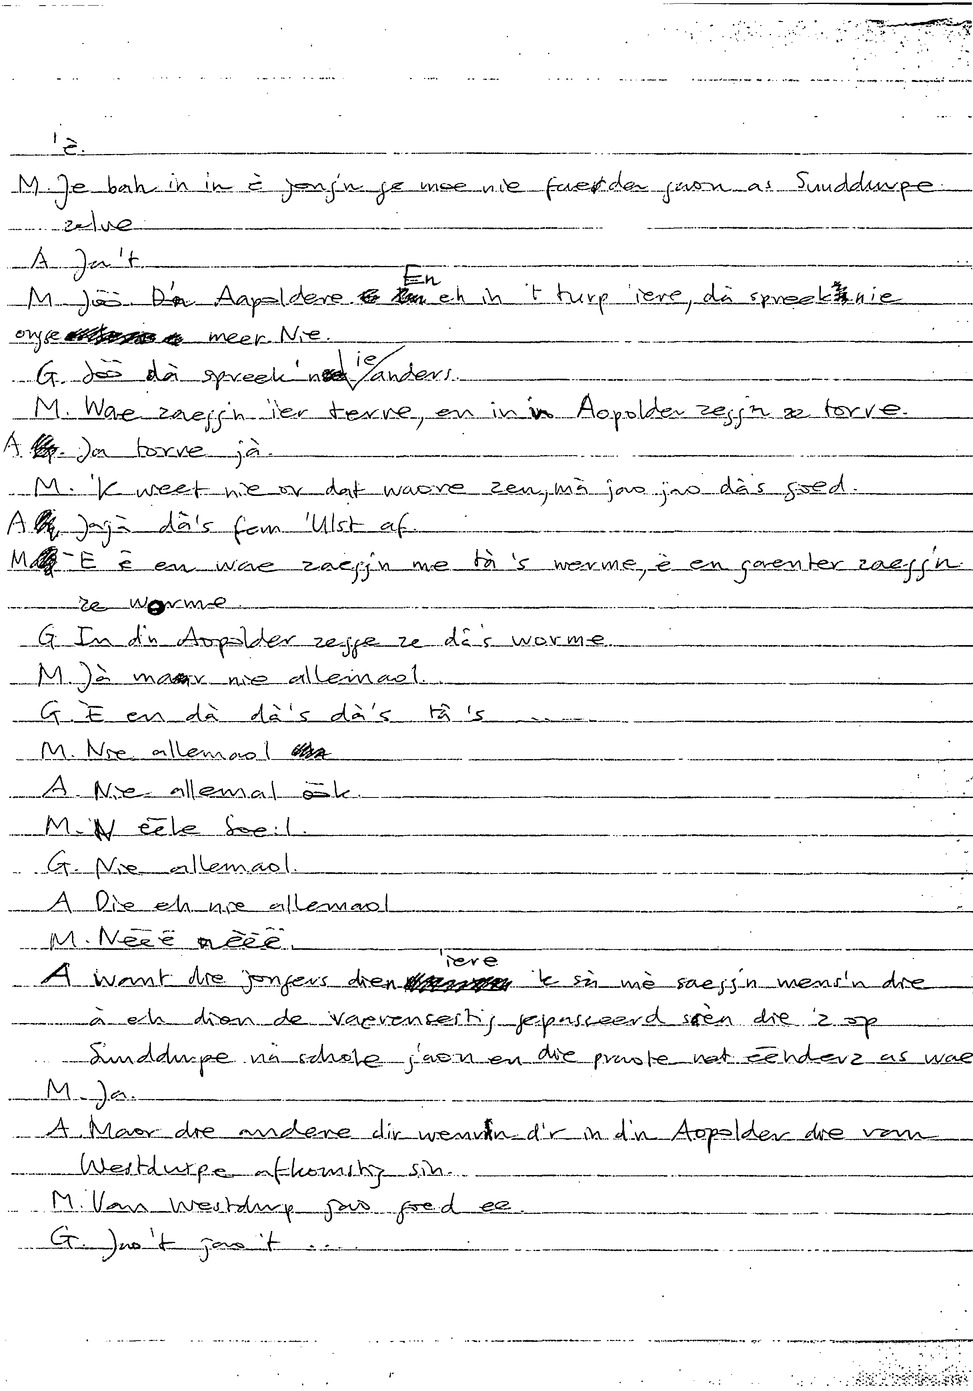 'è.
M. Je bah in in è jongn ge moe nie faerder gaon as Suuddurpe
zelve
A Ja't
M. Jōō D'n Aapoldere En eh in 't turp 'iere, dà spreek'n nie
onge meer. Nie.
G. Jōō dà spreek'n die anders.
M. Wae zaegg'n ier terve, en in Aopolder zegg'n ze torve.
A Ja torve jà.
M. 'k weet nie or dat waore zen, mà jao jao dàs goed.
A Jagà dà's fam 'Ulst af.
M E ē en wae zaegg'n me tà's werme, è en gaenter zaegg'n
ze worme.
G In d'n Aopolder zegge ze dà's worme
M. Jà maar nie allemaol.
G. E en dà dà's dà's tà's ......
M. Nie allemaol
A. Nie allemal ōōk.
M. N ēēle
G. Nie allemaol.
A Die eh nie allemaol
M. Nēēē nēēē.
A want die jongers dien 'iere 'k sù mè saegg'n mens'n die
à eh dien de vaevensestig gepasseerd sèèn die 'z op
Suuddurpe nà schole gaon en die praote net ēēnderz as wae
M. Ja.
A. Maor die andere dir d'r in d'n Aopolder die vam
Westdurpe afkomstig sin.
M. Van Westdurp jao goed ee.
G. Jao't jao't ....